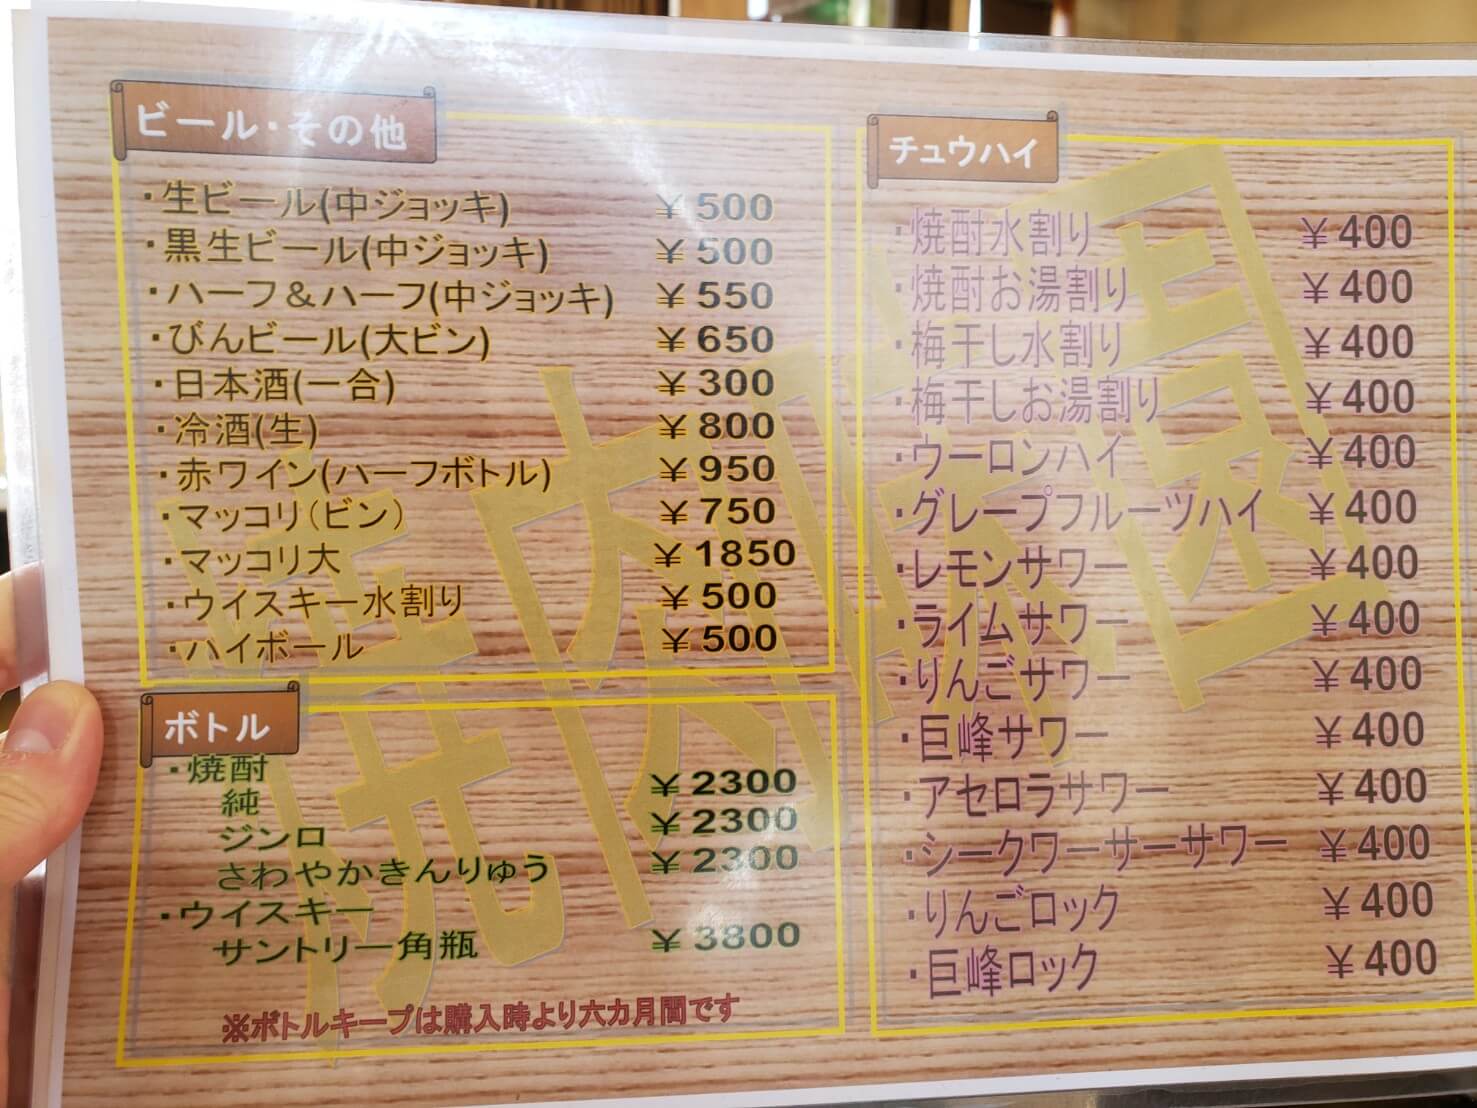 ビール・その他
・生ビール(中ジョッキ) ¥500
・黒生ビール(中ジョッキ) ¥500
・ハーフ＆ハーフ(中ジョッキ) ¥550
・びんビール(大ビン) ¥650
・日本酒(一合) ¥300
・冷酒(生) ¥800
・赤ワイン(ハーフボトル) ¥950
・マッコリ(ビン) ¥750
・マッコリ大 ¥1850
・ウイスキー水割り ¥500
・ハイボール ¥500
ボトル
・焼酎
純 ¥2300
ジンロ ¥2300
さわやかきんりゅう ¥2300
・ウイスキー
サントリー角瓶 ¥3800
※ボトルキープは購入時より六カ月間です
チュウハイ
・焼酎水割り ¥400
・焼酎お湯割り ¥400
・梅干し水割り ¥400
・梅干しお湯割り ¥400
・ウーロンハイ ¥400
・グレープフルーツハイ ¥400
・レモンサワー ¥400
・ライムサワー ¥400
・りんごサワー ¥400
・巨峰サワー ¥400
・アセロラサワー ¥400
・シークワーサーサワー ¥400
・りんごロック ¥400
・巨峰ロック ¥400